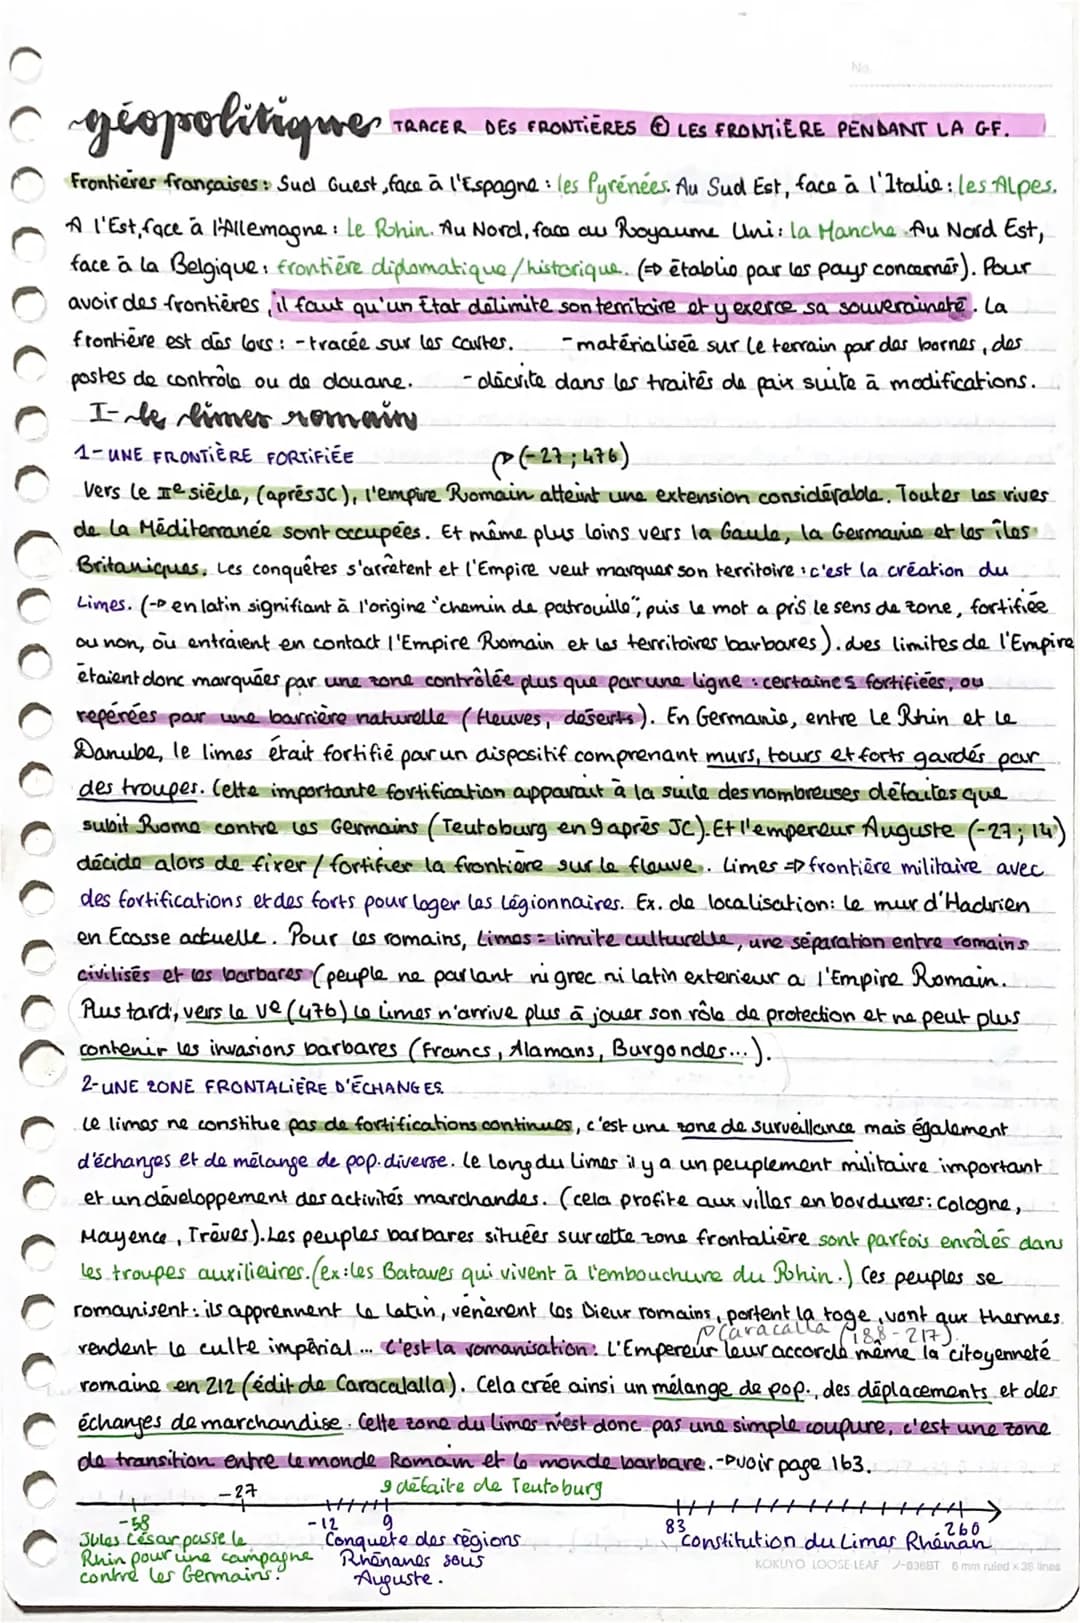 No.
géopolitique TRACER DES FRONTIÈRES LES FRONTIÈRE PENDANT LA GF.
Frontières françaises: Sud Ouest, face à l'Espagne : les Pyrénées. Au Sud Est, face à l'Italie : les Alpes.
A l'Est, face à l'Allemagne : Le Rhin. Au Nord, face au Royaume Uni : la Manche. Au Nord Est,
face à la Belgique : frontière diplomatique/historique. (=> établie par les pays concernés). Pour
avoir des frontières, il faut qu'un État délimite son territoire et y exerce sa souveraineté. La
frontière est dès lors : - tracée sur les cartes. - matérialisée sur le terrain par des bornes, des
postes de contrôle ou de douane. - décrite dans les traités de paix suite à modifications.
I- le limes romain
1- UNE FRONTIÈRE FORTIFIÉE
(-27 ; 476)
Vers le IIe siècle, (après JC), l'empire Romain atteint une extension considérable. Toutes les rives
de la Méditerranée sont occupées. Et même plus loins vers la Gaule, la Germanie et les îles
Britaniques. Les conquêtes s'arrêtent et l'Empire veut marquer son territoire : c'est la création du
Limes. (-> en latin signifiant à l'origine "chemin de patrouille", puis le mot a pris le sens de zone, fortifiée
ou non, où entraient en contact l'Empire Romain et les territoires barbares). Les limites de l'Empire
étaient donc marquées par une zone contrôlée plus que par une ligne : certaines fortifiées, ou
repérées par une barrière naturelle (fleuves, déserts). En Germanie, entre Le Rhin et Le
Danube, le limes était fortifié par un dispositif comprenant murs, tours et forts gardés par
des troupes. Cette importante fortification apparait à la suite des nombreuses défaites que
subit Rome contre les Germains (Teutoburg en 9 après JC). Et l'empereur Auguste (-27 ; 14)
décide alors de fixer / fortifier la frontière sur le fleuve. Limes => frontière militaire avec
des fortifications et des forts pour loger les légionnaires. Ex. de localisation: le mur d'Hadrien
en Ecosse actuelle. Pour les romains, Limes = limite culturelle, une séparation entre romains
civilisés et les barbares (peuple ne parlant ni grec ni latin exterieur a l'Empire Romain.
Plus tard, vers le Ve (476) le limes n'arrive plus à jouer son rôle de protection et ne peut plus
contenir les invasions barbares (Francs, Alamans, Burgondes...).
2- UNE ZONE FRONTALIÈRE D'ÉCHANGES
Le limes ne constitue pas de fortifications continues, c'est une zone de surveillance mais également
d'échanges et de mélange de pop. diverse. Le long du limes il y a un peuplement militaire important
et un développement des activités marchandes. (cela profite aux villes en bordures : Cologne,
Mayence, Trèves). Les peuples barbares situées sur cette zone frontalière sont parfois enrôlés dans
les troupes auxiliaires. (ex : les Bataves qui vivent à l'embouchure du Rhin.) Ces peuples se
romanisent : ils apprennent le latin, vénèrent les Dieux romains, portent la toge, vont aux thermes
Caracalla (188-217).
rendent le culte impérial ... C'est la romanisation. L'Empereur leur accorde même la citoyenneté
romaine en 212 (édit de Caracalalla). Cela crée ainsi un mélange de pop., des déplacements et des
échanges de marchandise. Cette zone du limes n'est donc pas une simple coupure, c'est une zone
de transition entre le monde Romain et le monde barbare. -> voir page 163.
-27 9 défaite de Teutoburg
-58 -12 9 83 260
Jules César passe le Rhin pour une campagne contre les Germains.
Conquête des régions Rhénanes sous Auguste.
Constitution du Limes Rhénan
KOKUYO LOOSE-LEAF ノ-836BT 6 mm ruled x 36 lines